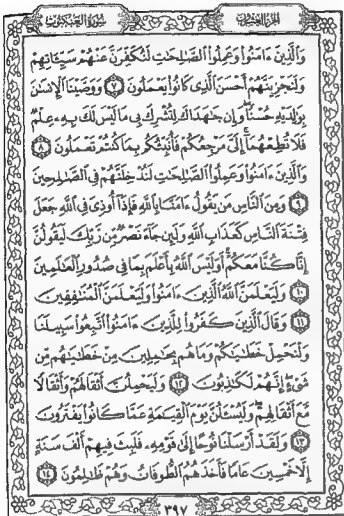 سُورَةُ العَنكَبُوت
الجُزءُ العِشْرُونَ
وَالَّذِينَ ءَامَنُوا۟ وَعَمِلُوا۟ ٱلصَّٰلِحَٰتِ لَنُكَفِّرَنَّ عَنْهُمْ سَيِّـَٔاتِهِمْ
وَلَنَجْزِيَنَّهُمْ أَحْسَنَ ٱلَّذِى كَانُوا۟ يَعْمَلُونَ ٧ وَوَصَّيْنَا ٱلْإِنسَٰنَ
بِوَٰلِدَيْهِ حُسْنًا ۖ وَإِن جَٰهَدَاكَ لِتُشْرِكَ بِى مَا لَيْسَ لَكَ بِهِۦ عِلْمٌ
فَلَا تُطِعْهُمَآ ۚ إِلَىَّ مَرْجِعُكُمْ فَأُنَبِّئُكُم بِمَا كُنتُمْ تَعْمَلُونَ ٨
وَٱلَّذِينَ ءَامَنُوا۟ وَعَمِلُوا۟ ٱلصَّٰلِحَٰتِ لَنُدْخِلَنَّهُمْ فِى ٱلصَّٰلِحِينَ
٩ وَمِنَ ٱلنَّاسِ مَن يَقُولُ ءَامَنَّا بِٱللَّهِ فَإِذَآ أُوذِىَ فِى ٱللَّهِ جَعَلَ
فِتْنَةَ ٱلنَّاسِ كَعَذَابِ ٱللَّهِ وَلَئِن جَآءَ نَصْرٌ مِّن رَّبِّكَ لَيَقُولُنَّ
إِنَّا كُنَّا مَعَكُمْ ۚ أَوَلَيْسَ ٱللَّهُ بِأَعْلَمَ بِمَا فِى صُدُورِ ٱلْعَٰلَمِينَ
١٠ وَلَيَعْلَمَنَّ ٱللَّهُ ٱلَّذِينَ ءَامَنُوا۟ وَلَيَعْلَمَنَّ ٱلْمُنَٰفِقِينَ
١١ وَقَالَ ٱلَّذِينَ كَفَرُوا۟ لِلَّذِينَ ءَامَنُوا۟ ٱتَّبِعُوا۟ سَبِيلَنَا
وَلْنَحْمِلْ خَطَٰيَٰكُمْ وَمَا هُم بِحَٰمِلِينَ مِنْ خَطَٰيَٰهُم مِّن
شَىْءٍ ۖ إِنَّهُمْ لَكَٰذِبُونَ ١٢ وَلَيَحْمِلُنَّ أَثْقَالَهُمْ وَأَثْقَالًا
مَّعَ أَثْقَالِهِمْ ۖ وَلَيُسْـَٔلُنَّ يَوْمَ ٱلْقِيَٰمَةِ عَمَّا كَانُوا۟ يَفْتَرُونَ
١٣ وَلَقَدْ أَرْسَلْنَا نُوحًا إِلَىٰ قَوْمِهِۦ فَلَبِثَ فِيهِمْ أَلْفَ سَنَةٍ
إِلَّا خَمْسِينَ عَامًا فَأَخَذَهُمُ ٱلطُّوفَانُ وَهُمْ ظَٰلِمُونَ ١٤
٣٩٧